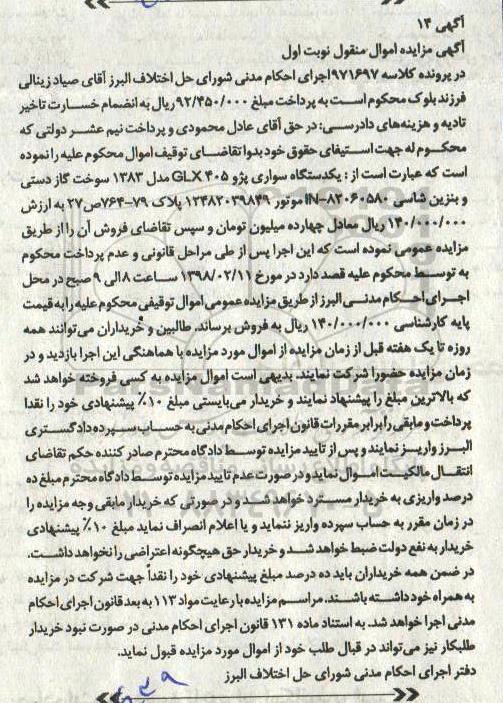 آگهی ۱۴
آگهی مزایده اموال منقول نوبت اول
در پرونده کلاسه ۹۷۱۶۹۷ اجرای احکام مدنی شورای حل اختلاف البرز آقای صیاد زینالی
فرزند بلوک محکوم است به پرداخت مبلغ ۹۲/۴۵۰/۰۰۰ ریال به انضمام خسارت تاخیر
تادیه و هزینه‌های دادرسی: در حق آقای عادل محمودی و پرداخت نیم عشر دولتی که
محکوم له جهت استیفای حقوق خود بدوا تقاضای توقیف اموال محکوم علیه را نموده
است که عبارت است از: یکدستگاه سواری پژو ۴۰۵ GLX مدل ۱۳۸۳ سوخت گاز دستی
و بنزین شاسی ۸۳۰۶۰۵۸۰-IN موتور ۱۲۴۸۳۰۳۹۸۴۹ پلاک ۷۹-۷۶۴ص۲۷ به ارزش
۱۴۰/۰۰۰/۰۰۰ ریال معادل چهارده میلیون تومان و سپس تقاضای فروش آن را از طریق
مزایده عمومی نموده است که این اجرا پس از طی مراحل قانونی و عدم پرداخت محکوم
به توسط محکوم علیه قصد دارد در مورخ ۱۳۹۸/۰۲/۱۱ ساعت ۸ الی ۹ صبح در محل
اجرای احکام مدنی البرز از طریق مزایده عمومی اموال توقیفی محکوم علیه را به قیمت
پایه کارشناسی ۱۴۰/۰۰۰/۰۰۰ ریال به فروش برساند، طالبین و خریداران می‌توانند همه
روزه تا یک هفته قبل از زمان مزایده از اموال مورد مزایده با هماهنگی این اجرا بازدید و در
زمان مزایده حضورا شرکت نمایند. بدیهی است اموال مزایده به کسی فروخته خواهد شد
که بالاترین مبلغ را پیشنهاد نمایند و خریدار می‌بایستی مبلغ ۱۰٪ پیشنهادی خود را نقدا
پرداخت و مابقی را برابر مقررات قانون اجرای احکام مدنی به حساب سپرده دادگستری
البرز واریز نمایند و پس از تایید مزایده توسط دادگاه محترم صادر کننده حکم تقاضای
انتقال مالکیت اموال نماید و در صورت عدم تایید مزایده توسط دادگاه محترم مبلغ ده
درصد واریزی به خریدار مسترد خواهد شد و در صورتی که خریدار مابقی وجه مزایده را
در زمان مقرر به حساب سپرده واریز ننماید و یا اعلام انصراف نماید مبلغ ۱۰٪ پیشنهادی
خریدار به نفع دولت ضبط خواهد شد و خریدار حق هیچگونه اعتراضی را نخواهد داشت.
در ضمن همه خریداران باید ده درصد مبلغ پیشنهادی خود را نقداً جهت شرکت در مزایده
به همراه خود داشته باشند. مراسم مزایده با رعایت مواد ۱۱۳ به بعد قانون اجرای احکام
مدنی اجرا خواهد شد. به استناد ماده ۱۳۱ قانون اجرای احکام مدنی در صورت نبود خریدار
طلبکار نیز می‌تواند در قبال طلب خود از اموال مورد مزایده قبول نماید.
دفتر اجرای احکام مدنی شورای حل اختلاف البرز